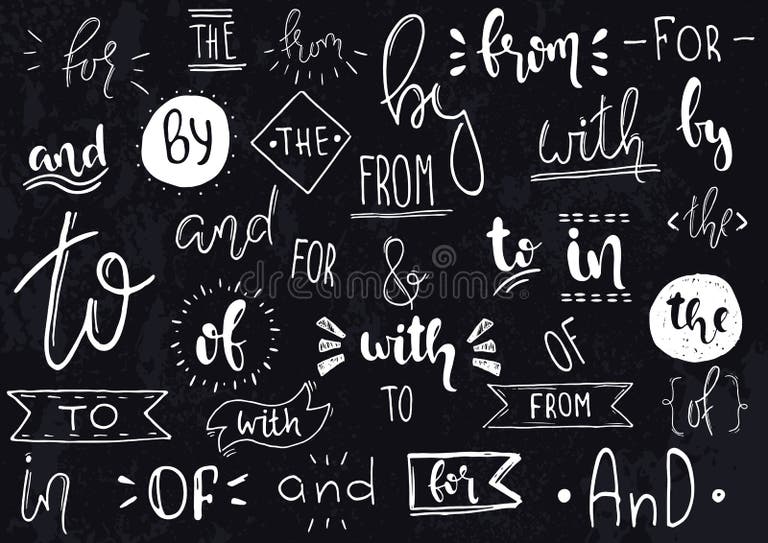 for
THE
from
by
from
-FOR-
and
BY
• THE •
FROM
with
by
to
and
FOR
&
to
in
<the>
of
with
OF
the
TO
with
TO
FROM
{of}
in
OF
and
for
• AnD •
dreamstime